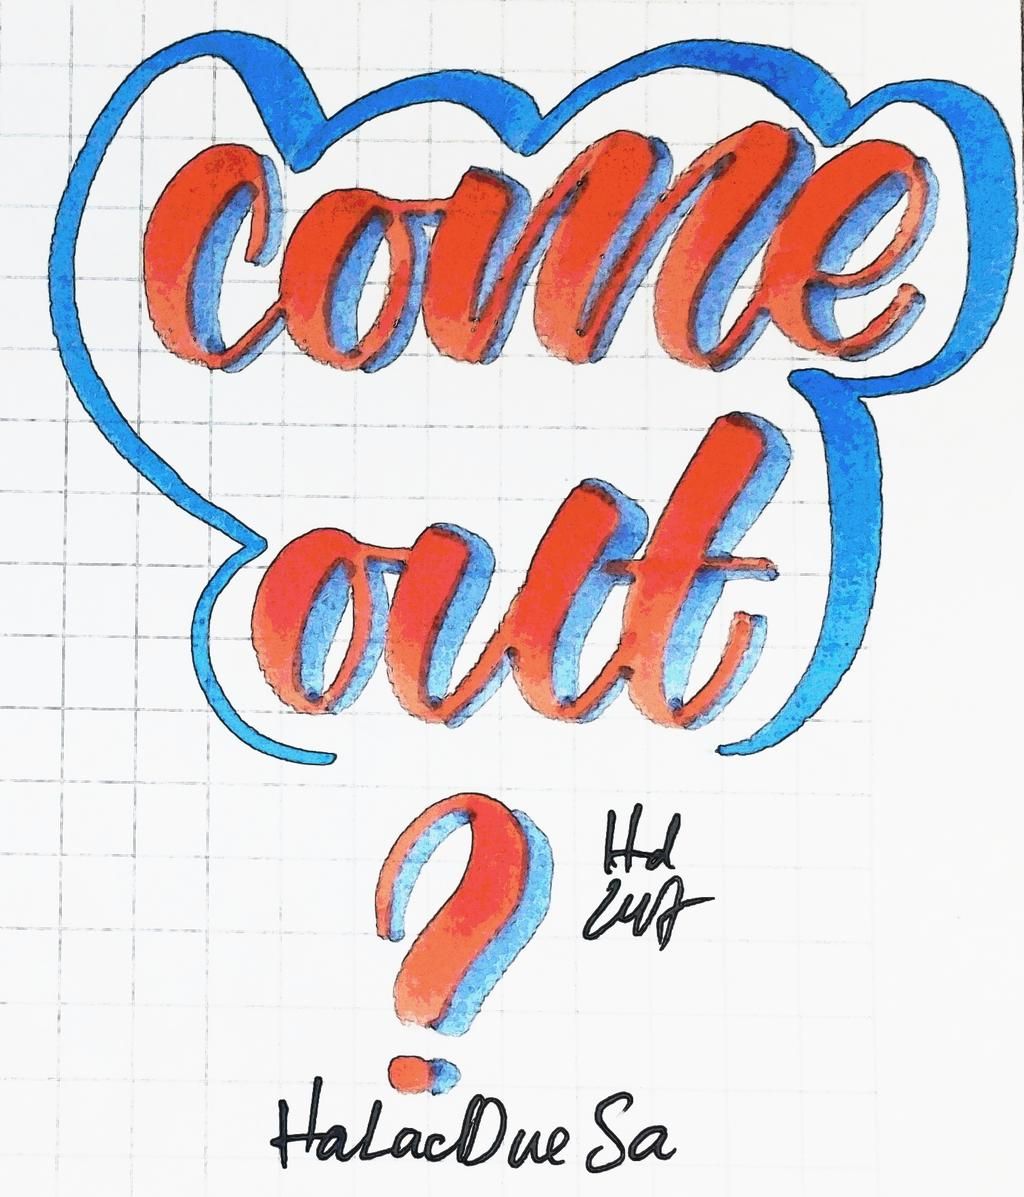 come
out
?
Hd
HaLacDue Sa